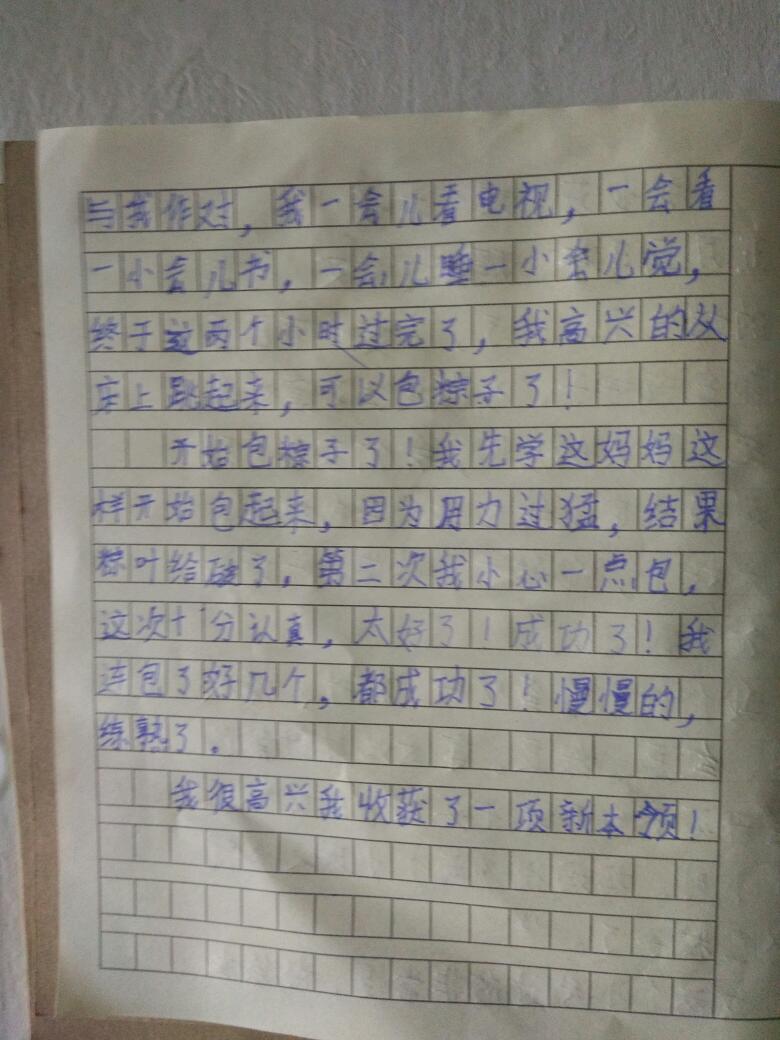 与我作对，我一会儿看电视，一会看
一小会儿书，一会儿睡一小会儿觉，
终于这两个小时过完了，我高兴的从
床上跳起来，可以包粽子了！
开始包粽子了！我先学这妈妈这
样开始包起来，因为用力过猛，结果
粽叶给破了，第二次我小心一点包，
这次十分认真，太好了！成功了！我
连包了好几个，都成功了！慢慢的，
练熟了。
我很高兴我收获了一项新本领！